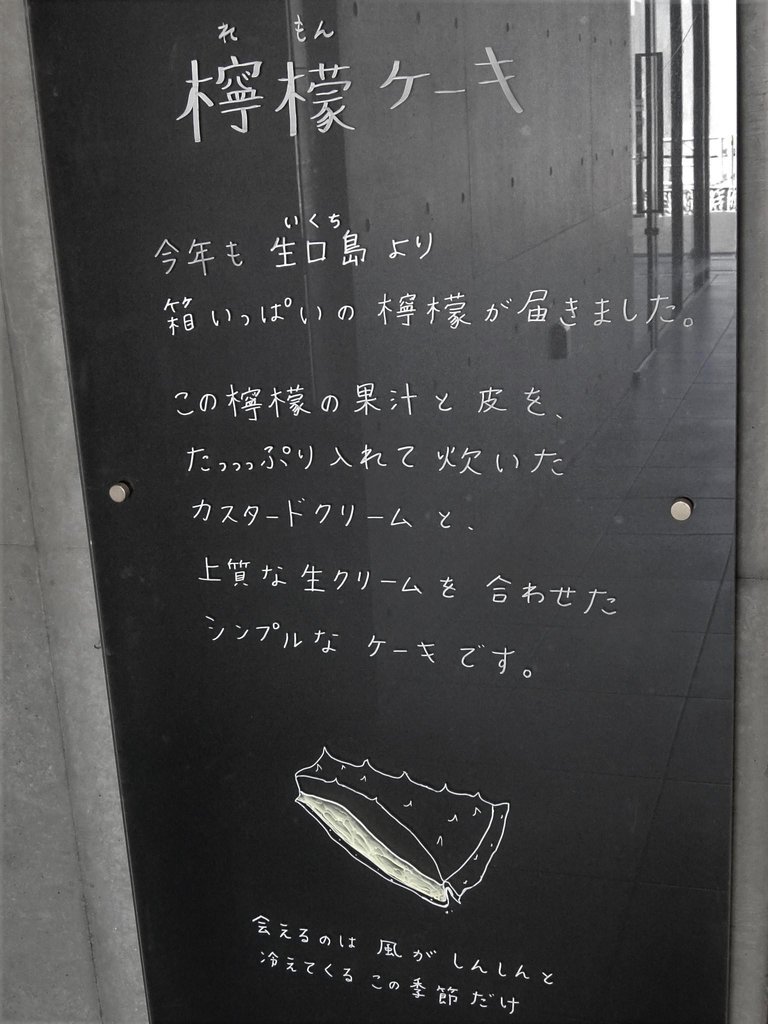 れ もん
檸檬ケーキ
いくち
今年も 生口島 より
箱いっぱいの 檸檬が届きました。
この檸檬の果汁と 皮を、
たっっっぷり入れて 炊いた
カスタードクリームと、
上質な生クリームを 合わせた
シンプルな ケーキです。
会えるのは 風が しんしんと
冷えてくる この季節だけ